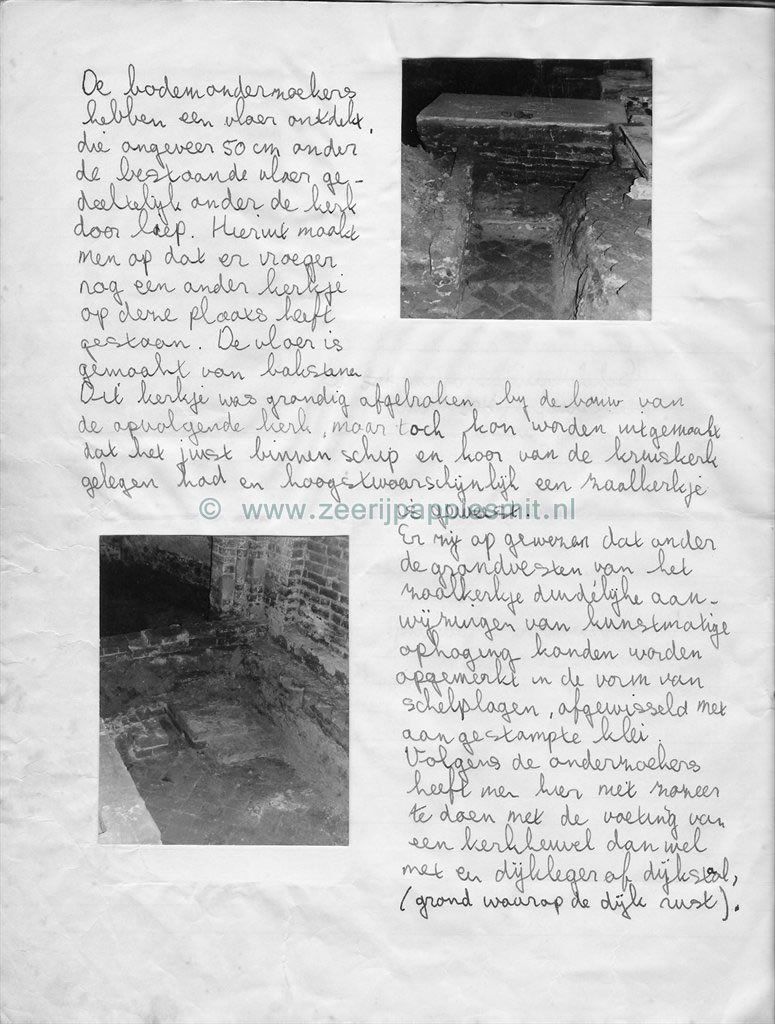 De bodemonderzoekers
hebben een vloer ontdekt,
die ongeveer 50 cm onder
de bestaande vloer ge-
deeltelijk onder de kerk
door liep. Hieruit maakt
men op dat er vroeger
nog een ander kerkje
op deze plaats heeft
gestaan. De vloer is
gemaakt van bakstenen
Dit kerkje was grondig afgebroken bij de bouw van
de opvolgende kerk, maar toch kon worden uitgemaakt
dat het juist binnen schip en koor van de kruiskerk
gelegen had en hoogstwaarschijnlijk een zaalkerkje
is geweest.
© www.zeerijpappiesmit.nl
Er zij op gewezen dat onder
de grondvesten van het
zaalkerkje duidelijke aan-
wijzingen van kunstmatige
ophoging konden worden
opgemerkt in de vorm van
schelplagen, afgewisseld met
aangestampte klei.
Volgens de onderzoekers
heeft men hier niet zozeer
te doen met de voeting van
een kerkheuvel dan wel
met en dijkleger of dijkstal,
(grond waarop de dijk rust).